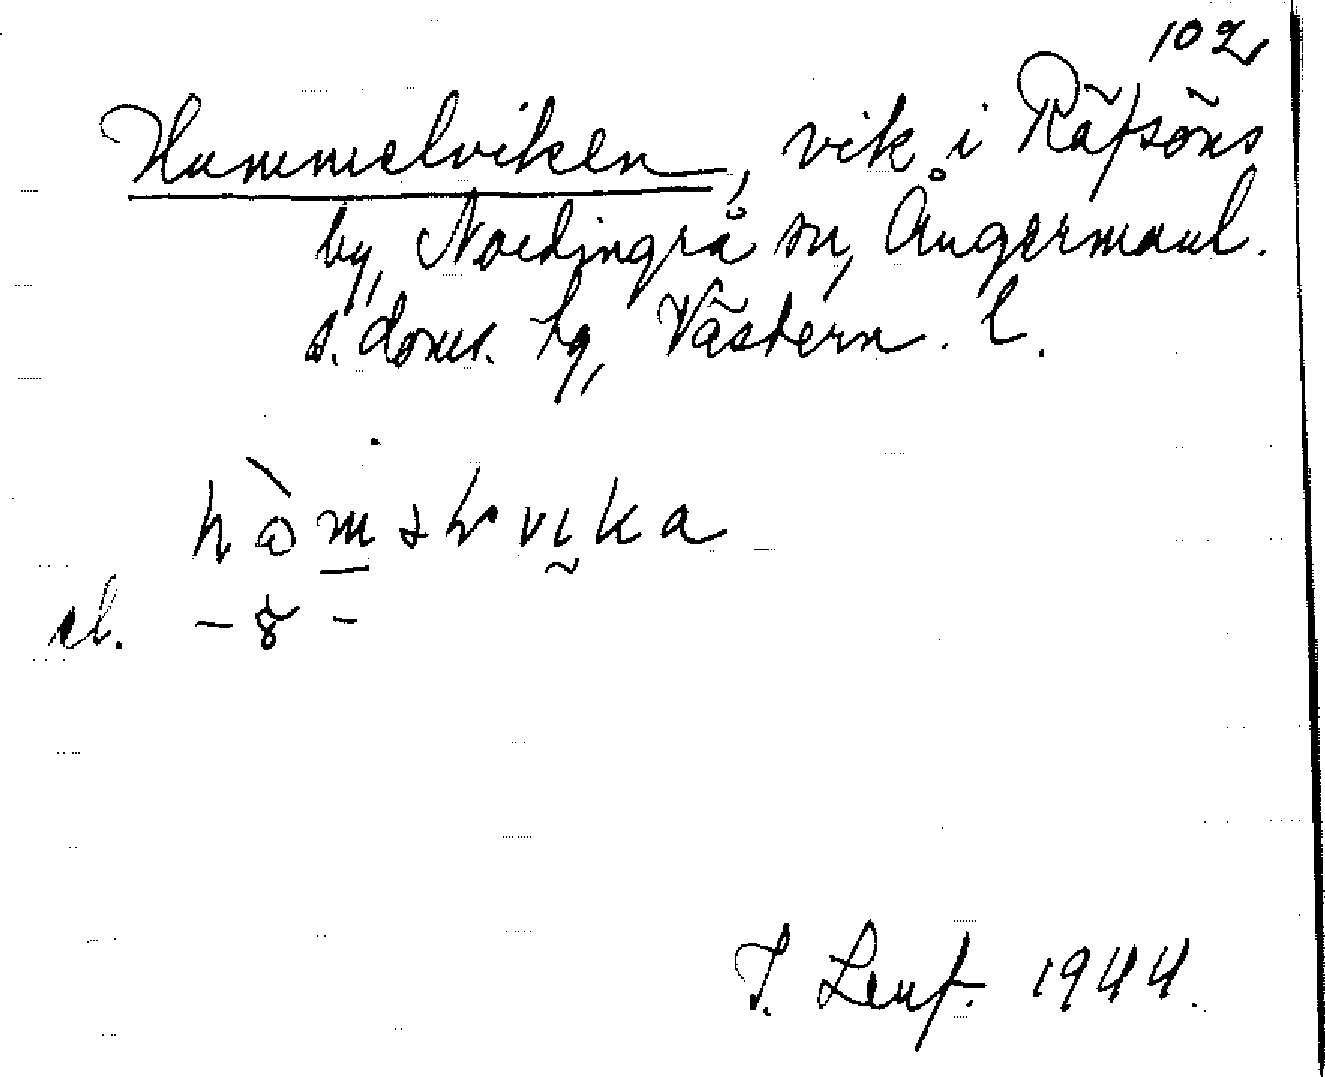 102
Hummelviken, vik i Räfsöns
by, Nordingrå sn, Ångermanl.
s. doms. hg, Västern. l.
el. - 8 -
I. Lenf. 1944.